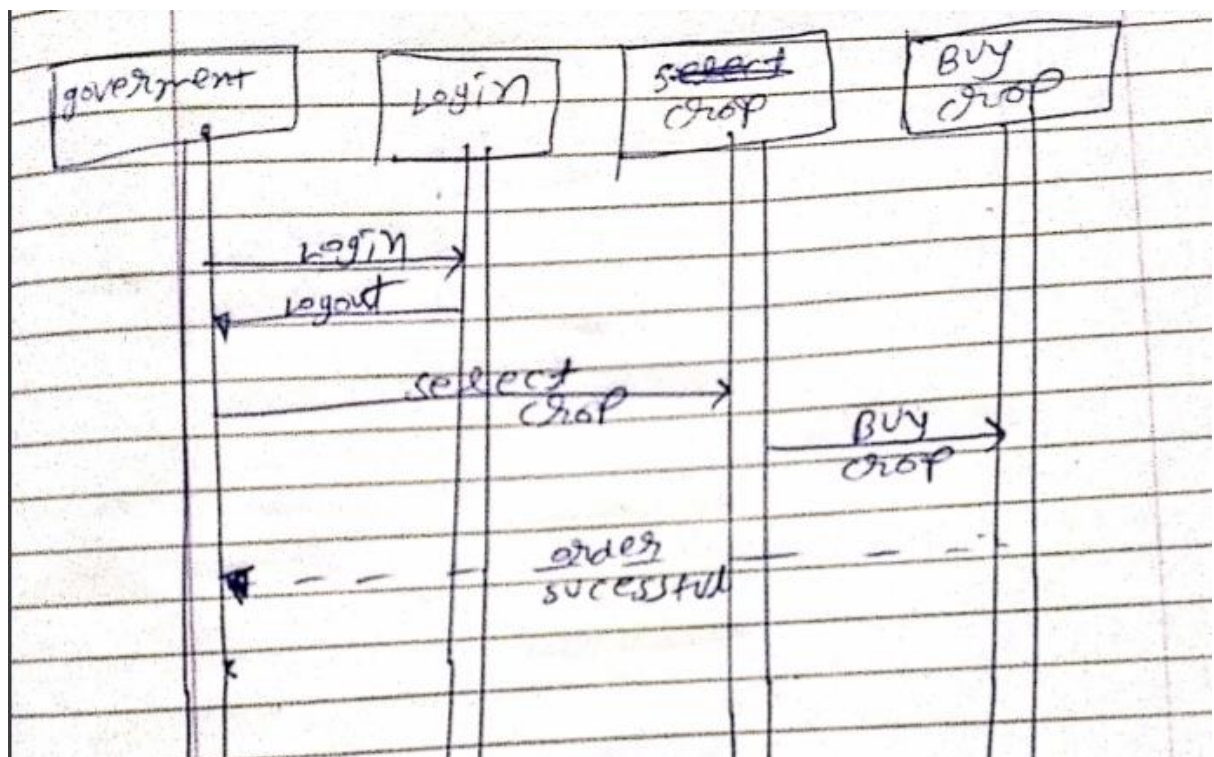 goverment
Login
select
crop
BUY
crop
Login
Logout
select
crop
BUY
crop
order
sucessful